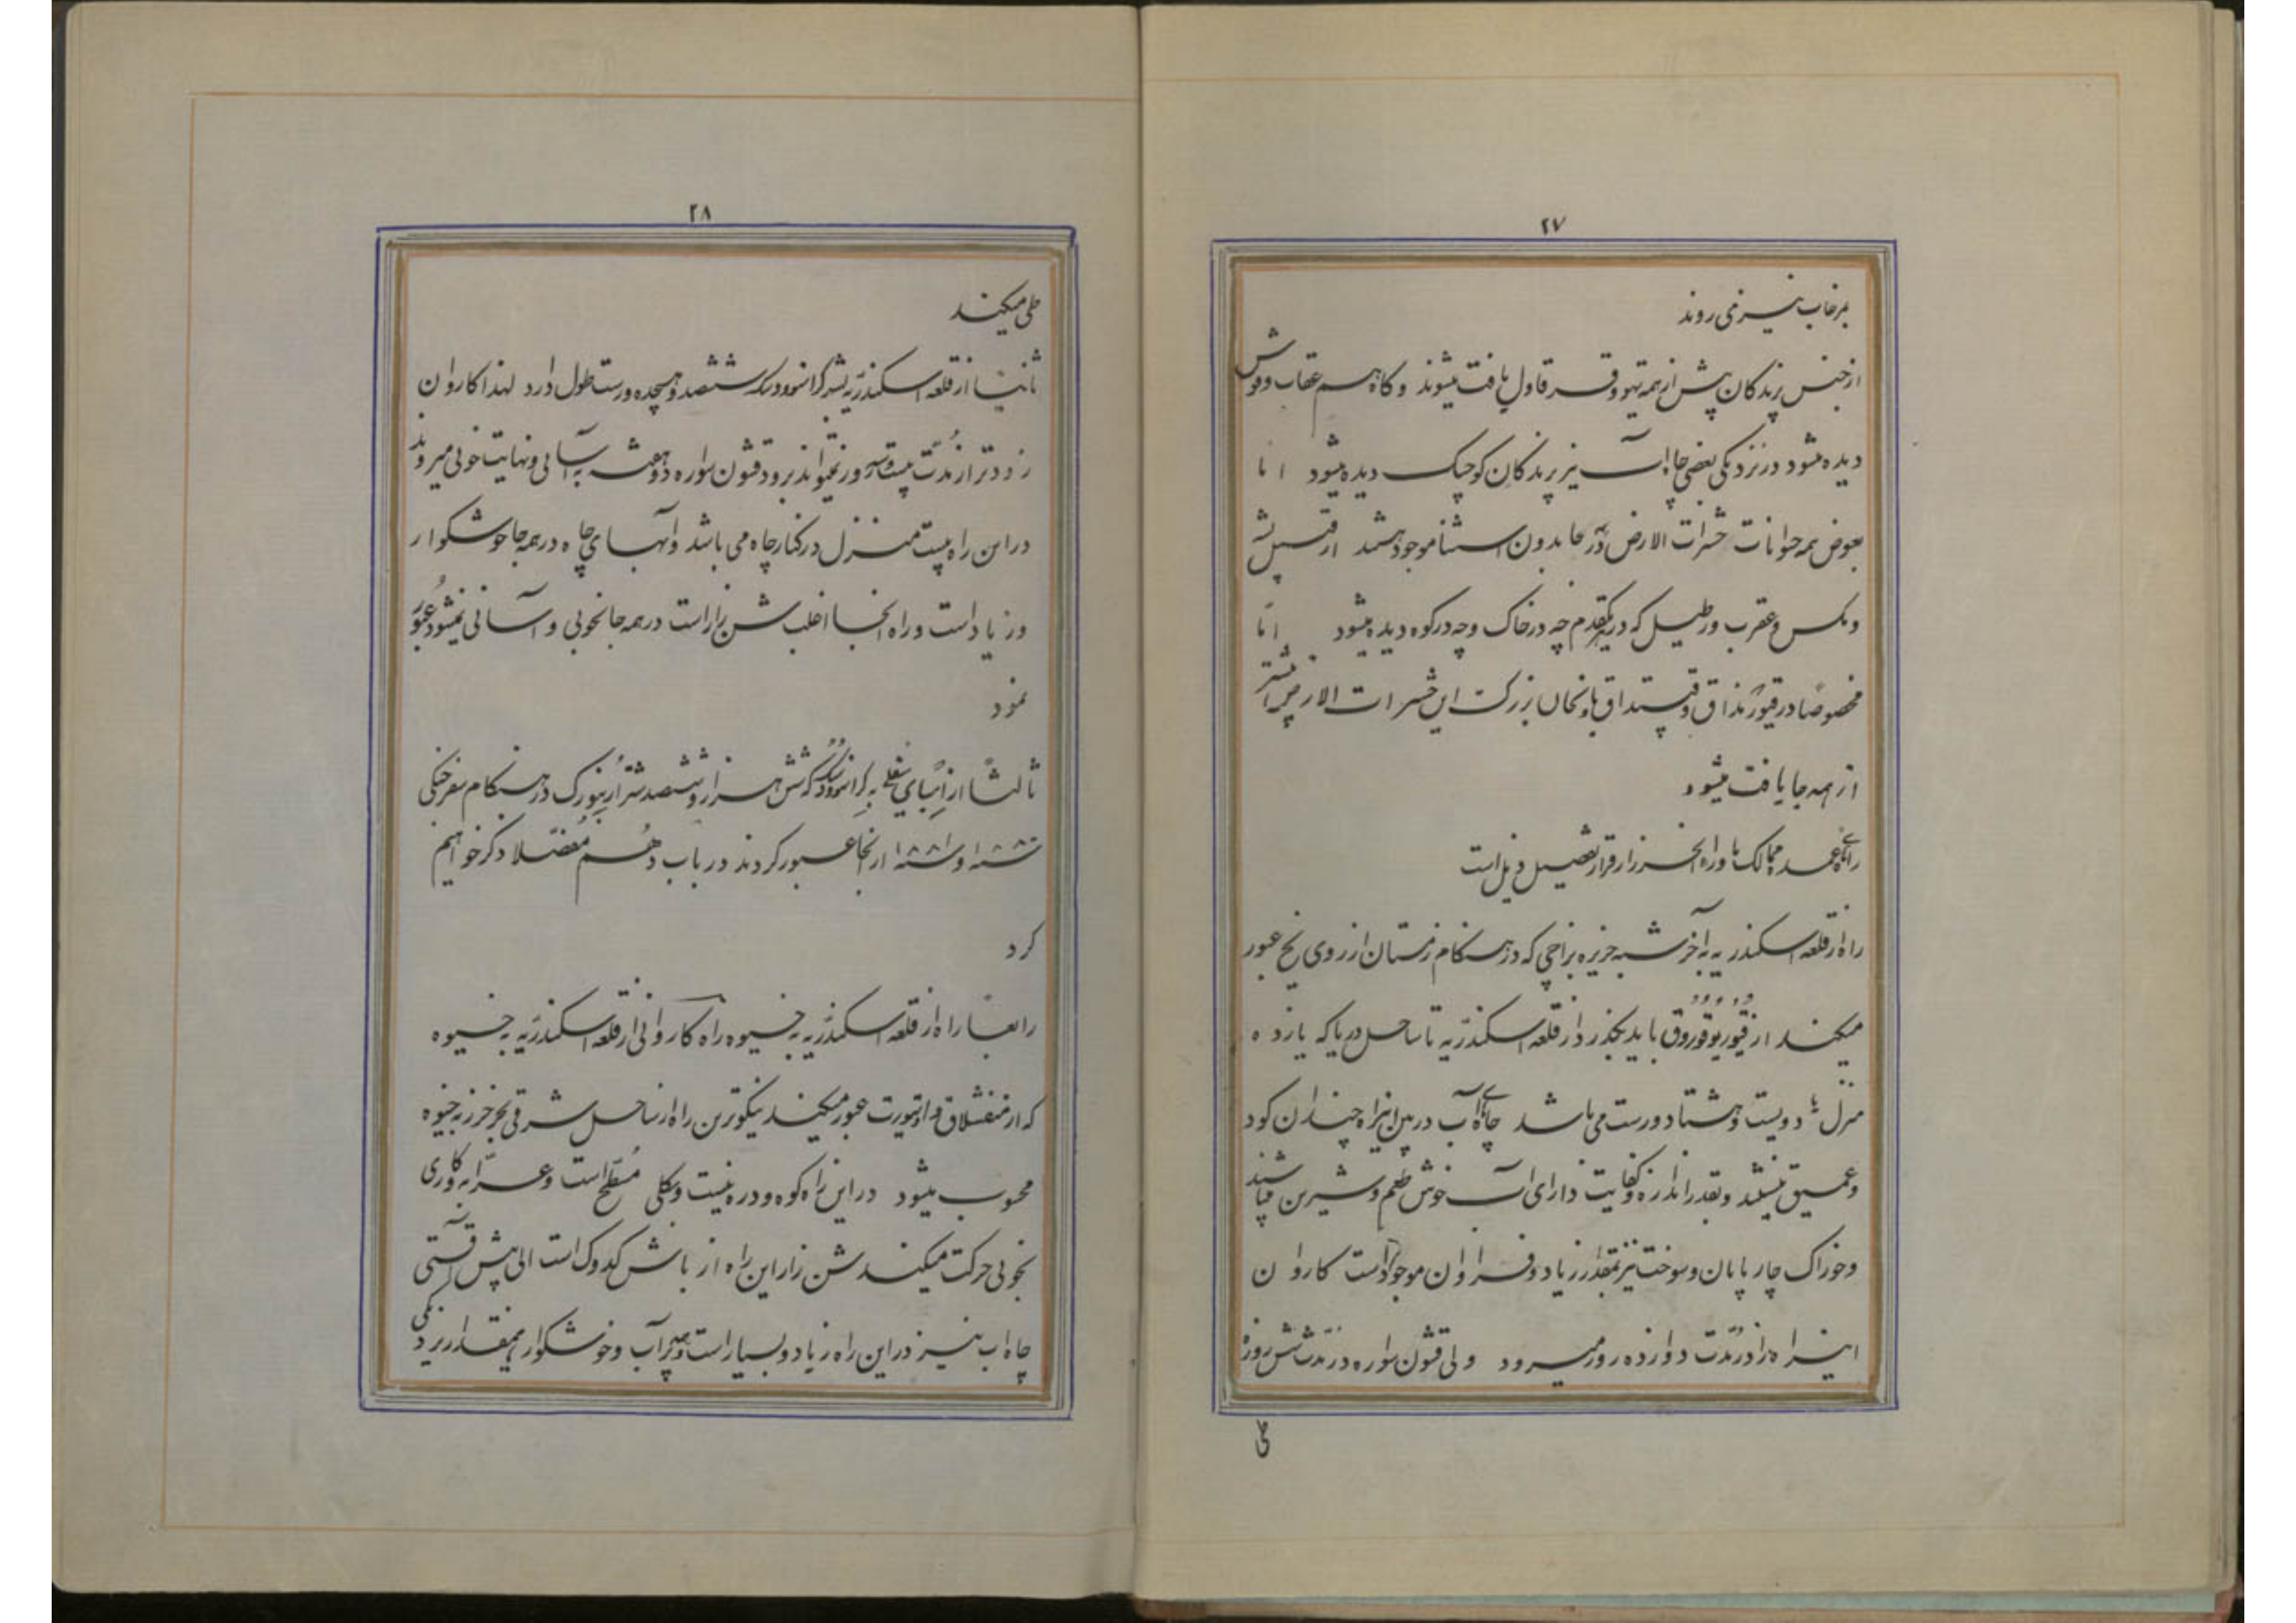 ۲۷
بر خاب نیز می روند
از جنس پرندگان پیش از همه تیهو و قرقاول یافت میشوند و گاه هم عقاب و قوش
دیده میشود در نزدیکی بعضی چاه آب نیز پرندگان کوچک دیده میشود اما
بعوض همه حیوانات حشرات الارض در آنجا بدون استثنا موجود هستند از قبیل پشه
و مگس و عقرب و رطیل که در هر قدم چه در خاک و چه در کوه دیده میشود اما
مخصوصا در و بالخان بزرگ این حشرات الارض بیشتر
از همه جا یافت میشود
راههای عمده ممالک ماوراء الخزر از قرار تفصیل ذیل است
راه از قلعه اسکندریه به آخر شبه جزیره بزاچی که در هنگام زمستان از روی یخ عبور
میکنند از باید بگذرد از قلعه اسکندریه تا ساحل دریا که یازده
منزل دویست و هشتاد ورست می باشد چاههای آب در بین این راه چندان گود
و عمیق نیستند و بقدر اندازه و کفایت دارای آب خوش طعم و شیرین میباشند
و خوراک چارپایان و سوخت نیز بمقدار زیاد و فراوان موجود است کاروان
اینراه را در مدت دوازده روز میرود ولی قشون سواره در مدت شش روز
طی
۲۸
طی میکند
ثانیا از قلعه اسکندریه بشهر کراسنوودسک ششصد و هیجده ورست طول دارد لهذا کاروان
زودتر از مدت بیست و سه روز نمیتواند برود قشون سواره دو هفته به آسانی و نهایت خوبی میروند
در این راه بیست منزل در کنار چاه می باشد و آبهای چاه در همه جا خوشگوار
و زیاد است و راه آنجا اغلب شن زار است در همه جا بخوبی و آسانی نمیشود عبور
نمود
ثالثا از به کراسنوودسک که شش هزار و ششصد شتر از بزرگ در هنگام سفر جنگی
سنه ۱۸۸۰ و سنه ۱۸۸۱ از آنجا عبور کردند در باب دهم مفصلا ذکر خواهیم
کرد
رابعا راه از قلعه اسکندریه به خیوه راه کاروانی از قلعه اسکندریه به خیوه
که از منقشلاق و اوستیورت عبور میکنند نیکوترین راه از ساحل شرقی بحر خزر به خیوه
محسوب میشود در این راه کوه و دره نیست و بکلی مسطح است و عرابه و گاری
بخوبی حرکت میکند شن زار این راه از است الی
چاه آب نیز در این راه زیاد و بسیار است و همه پر آب و خوشگوار همینقدر